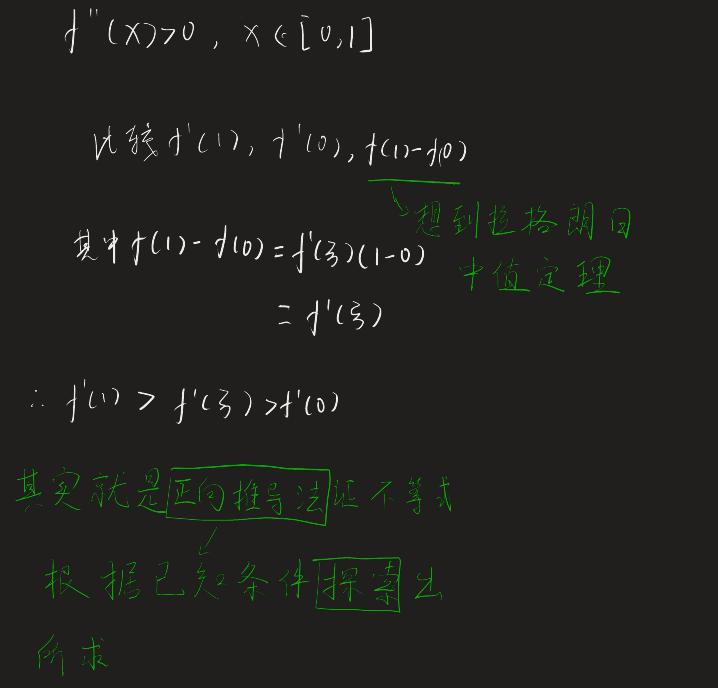 f''(x)>0, x∈[0,1]
比较f'(1), f'(0), f(1)-f(0)
想到拉格朗日
其中f(1)-f(0)=f'(ξ)(1-0)
中值定理
=f'(ξ)
∴ f'(1) > f'(ξ) > f'(0)
其实就是正向推导法证不等式
根据已知条件探索出
所求